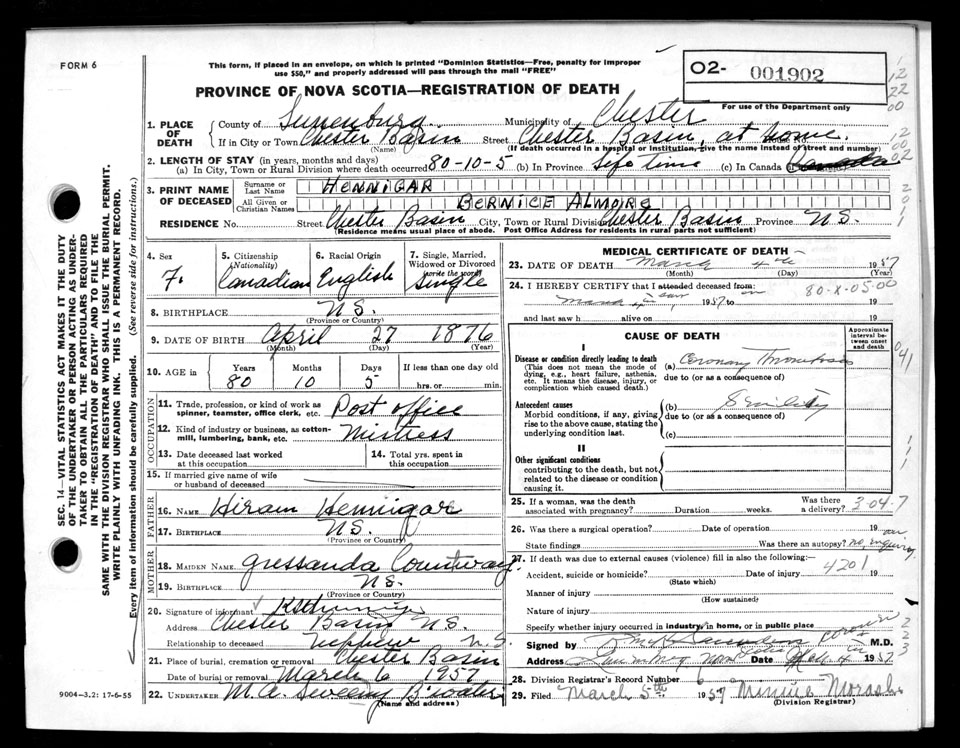 FORM 6
This form, if placed in an envelope, on which is printed "Dominion Statistics—Free, penalty for improper
use $50," and properly addressed will pass through the mail "FREE"
O2- 001902
For use of the Department only
PROVINCE OF NOVA SCOTIA—REGISTRATION OF DEATH
1. PLACE OF DEATH
County of Lunenburg Municipality of Chester
If in City or Town Chester Basin Street Chester Basin, at home.
(Name) (If death occurred in a hospital or institution, give the name instead of street and number)
2. LENGTH OF STAY (in years, months and days)
(a) In City, Town or Rural Division where death occurred 80-10-5 (b) In Province Life time (c) In Canada
3. PRINT NAME OF DECEASED
Surname or Last Name HENNIGAR
All Given or Christian Names BERNICE ALMOIRE
RESIDENCE No. Street Chester Basin City, Town or Rural Division Chester Basin Province N.S.
(Residence means usual place of abode. Post Office Address for residents in rural parts not sufficient)
4. Sex F.
5. Citizenship (Nationality) Canadian
6. Racial Origin English
7. Single, Married, Widowed or Divorced (write the word) Single
8. BIRTHPLACE N.S.
(Province or Country)
9. DATE OF BIRTH April 27 1876
(Month) (Day) (Year)
10. AGE Years Months Days If less than one day old
80 10 5 hrs. or min.
OCCUPATION
11. Trade, profession, or kind of work as spinner, teamster, office clerk, etc. Post office
12. Kind of industry or business, as cotton-mill, lumbering, bank, etc. Mistress
13. Date deceased last worked at this occupation
14. Total yrs. spent in this occupation
15. If married give name of wife or husband of deceased
FATHER
16. NAME Hiram Hennigar
17. BIRTHPLACE N.S.
(Province or Country)
MOTHER
18. MAIDEN NAME Gressanda Countway
19. BIRTHPLACE N.S.
(Province or Country)
20. Signature of informant
Address Chester Basin N.S.
Relationship to deceased Nephew N.S
21. Place of burial, cremation or removal Chester Basin
Date of burial or removal March 6 1957
22. UNDERTAKER M.A. Sweeny
(Name and address)
MEDICAL CERTIFICATE OF DEATH
23. DATE OF DEATH March 4th 1957
(Month) (Day) (Year)
24. I HEREBY CERTIFY that I attended deceased from: 80-X-05-00
1957 to 19
and last saw h alive on 19
CAUSE OF DEATH
Approximate interval between onset and death
I
Disease or condition directly leading to death
(This does not mean the mode of dying, e.g., heart failure, asthenia, etc. It means the disease, injury, or complication which caused death.)
(a) Coronary Thrombosis
due to (or as a consequence of)
Antecedent causes
Morbid conditions, if any, giving rise to the above cause, stating the underlying condition last.
(b) Senility
due to (or as a consequence of)
(c)
II
Other significant conditions
contributing to the death, but not related to the disease or condition causing it.
25. If a woman, was the death associated with pregnancy? Duration weeks. Was there a delivery? 3-04-7
26. Was there a surgical operation? Date of operation 19
State findings Was there an autopsy? no, inquiry
27. If death was due to external causes (violence) fill in also the following:
Accident, suicide or homicide? Date of injury 4201 19
(State which)
Manner of injury
(How sustained)
Nature of injury
Specify whether injury occurred in industry, in home, or in public place
Signed by Coroner M.D.
Address Date 4 1957
28. Division Registrar's Record Number 6
29. Filed March 5th 1957 Minnie Morash
(Division Registrar)
SEC. 14—VITAL STATISTICS ACT MAKES IT THE DUTY
OF THE UNDERTAKER OR PERSON ACTING AS UNDER-
TAKER TO OBTAIN ALL THE PARTICULARS REQUIRED
IN THE "REGISTRATION OF DEATH" AND TO FILE THE
SAME WITH THE DIVISION REGISTRAR WHO SHALL ISSUE THE BURIAL PERMIT.
WRITE PLAINLY WITH UNFADING INK. THIS IS A PERMANENT RECORD.
Every item of information should be carefully supplied. (See reverse side for instructions.)
9004-3.2: 17-6-55